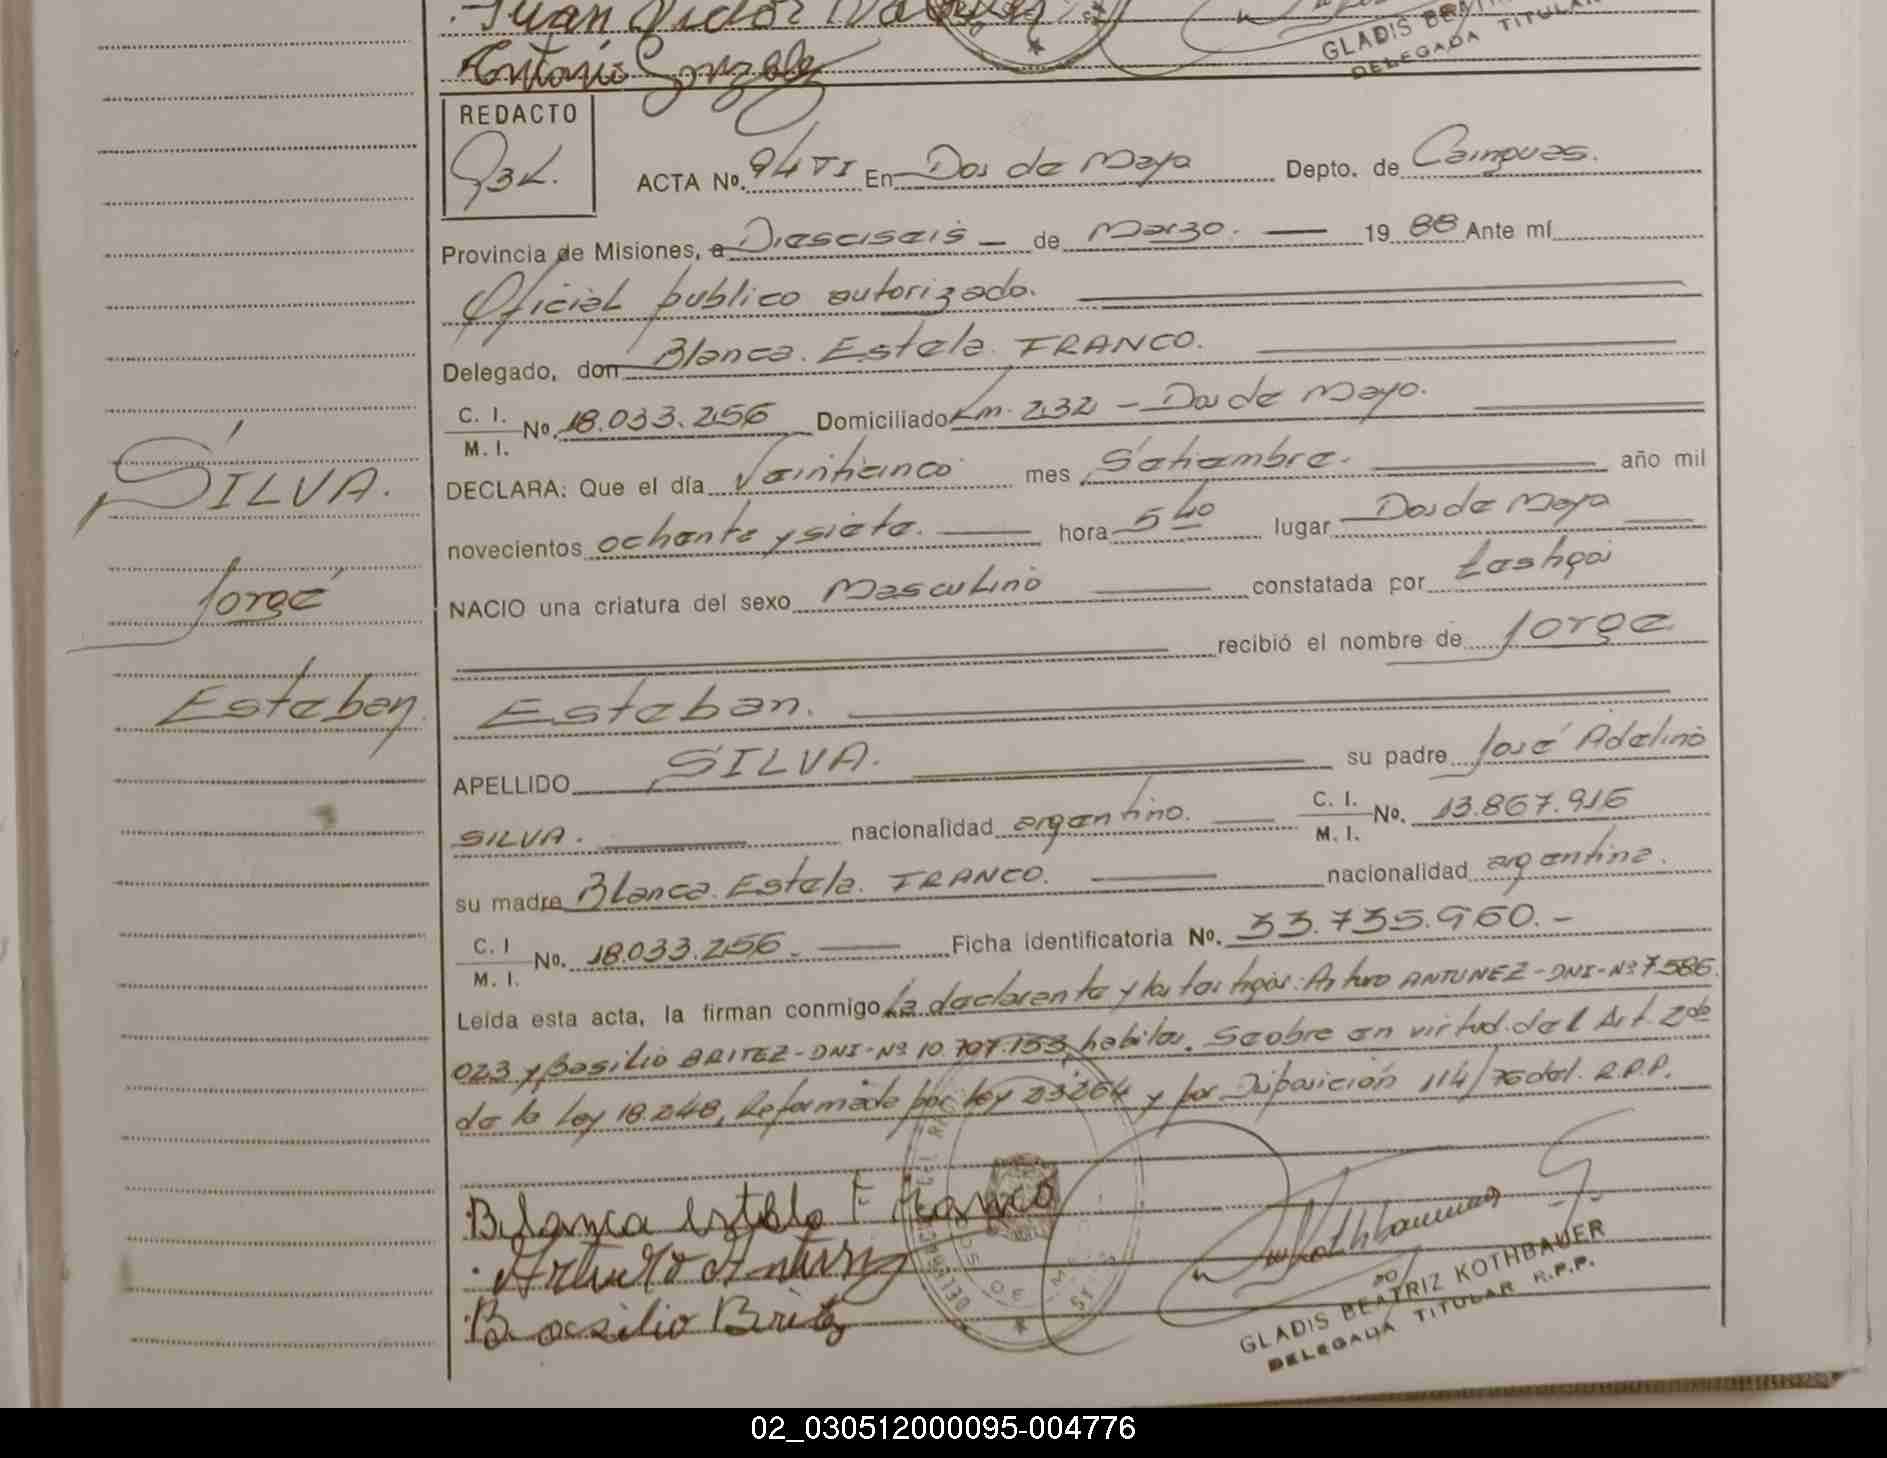 Juan Victor
Antonio Gonzalez
GLADIS BEATRIZ
DELEGADA TITULAR
REDACTO
ACTA No. 94 TI En Dos de Mayo Depto. de Cainguas.
Provincia de Misiones, a Dieciseis — de Marzo. — 19 88 Ante mí
Oficial publico autorizado.
Delegado, don Blanca Estela FRANCO.
C. I.
M. I. No. 18.033.256 Domiciliado Km. 232 - Dos de Mayo.
DECLARA: Que el día Veinticinco mes Setiembre. — año mil
novecientos ochenta y siete. — hora 5 40 lugar Dos de Mayo
NACIO una criatura del sexo Masculino — constatada por testigos
recibió el nombre de Jorge
Esteban.
APELLIDO SILVA. su padre José Adelino
SILVA. nacionalidad argentino. C. I.
M. I. No. 13.867.916
su madre Blanca Estela FRANCO. nacionalidad argentina.
C. I
M. I. No. 18.033.256 Ficha identificatoria No. 33.735.960.-
Leída esta acta, la firman conmigo la declarante y los testigos: Arturo ANTUNEZ-DNI-Nº 7.586.
023 y Basilio BRITEZ-DNI-Nº 10.707.153, habiles. Se obre en virtud del Art. 2do
de la Ley 18.248, Reformada por Ley 23264 y por Disposición 114/76 del. R.P.P.
SILVA.
Jorge
Esteban
Blanca Estela F Franco
Arturo Antunez
Basilio Britez
GLADIS BEATRIZ KOTHBAUER
DELEGADA TITULAR R.P.P.
02_030512000095-004776